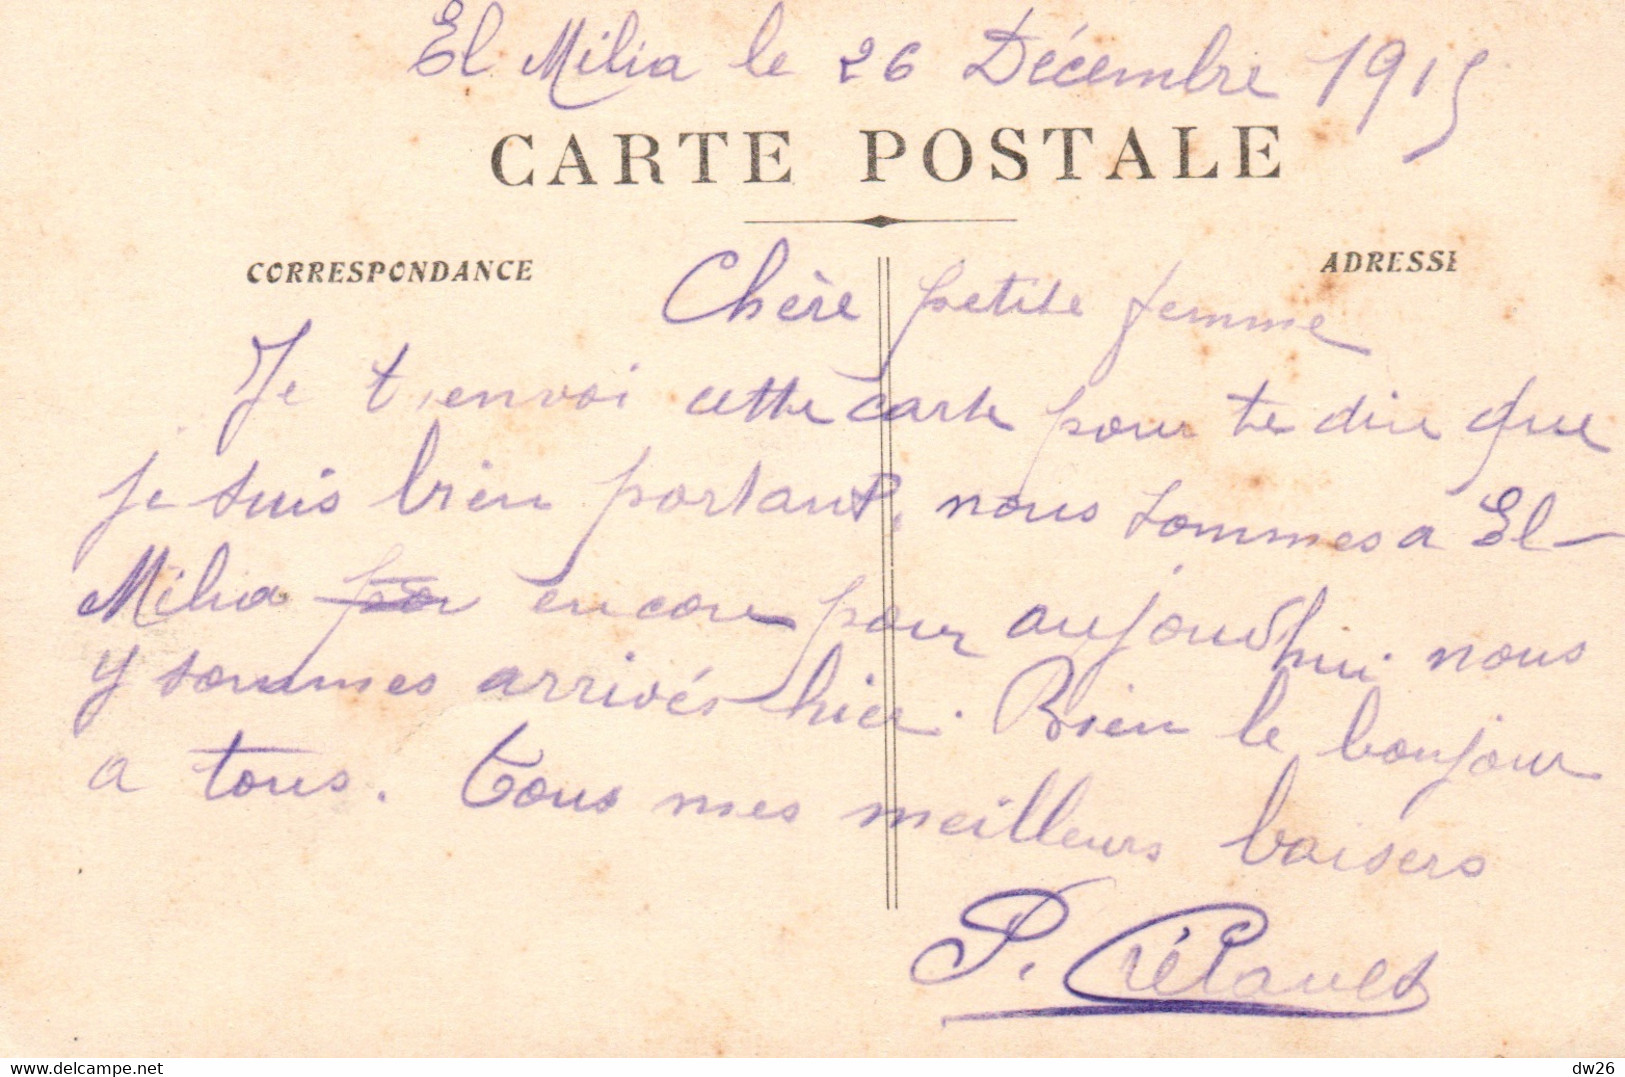 El Milia le 26 Décembre 1915
CARTE POSTALE
CORRESPONDANCE
ADRESSE
Chère petite femme
Je t'envoi cette carte pour te dire que
je suis bien portant, nous sommes a El-
Milia encore pour aujourd'hui nous
y sommes arrivés hier. Bien le bonjour
a tous. Tous mes meilleurs baisers
P.
delcampe.net
dw26